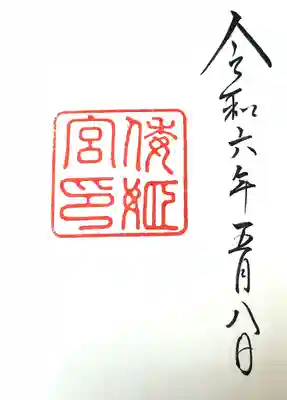 令和六年五月八日
倭姫
宮印